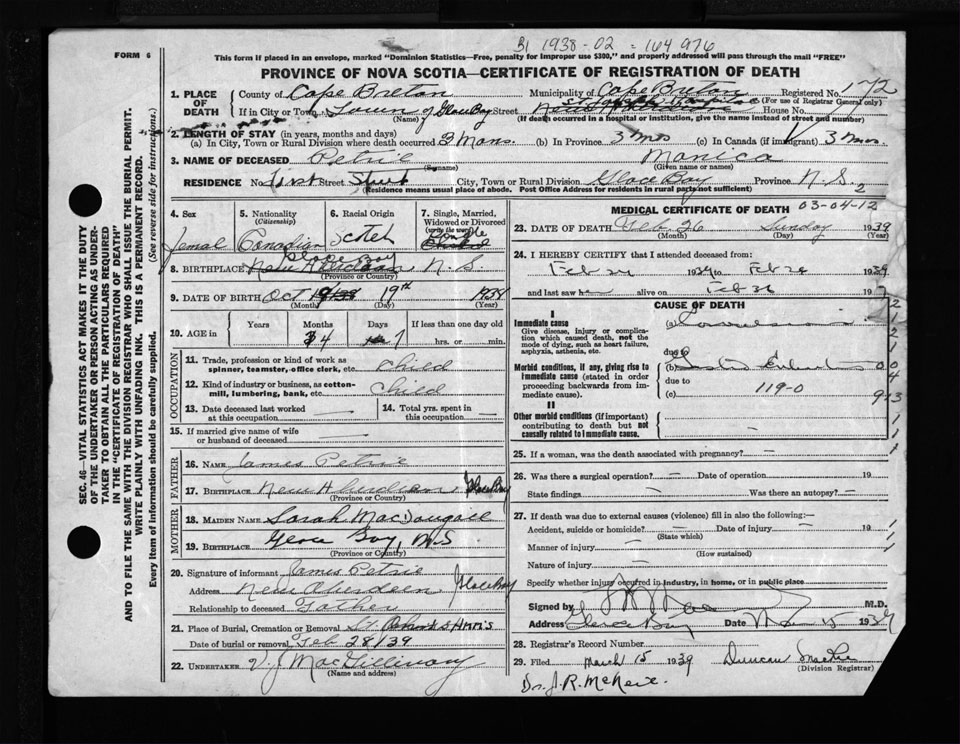 B1 1938-02 = 164976
FORM 6
This form if placed in an envelope, marked "Dominion Statistics—Free, penalty for improper use $300," and properly addressed will pass through the mail "FREE"
PROVINCE OF NOVA SCOTIA—CERTIFICATE OF REGISTRATION OF DEATH
1. PLACE OF DEATH
County of Cape Breton Municipality of Cape Breton Registered No. 172
(For use of Registrar General only)
If in City or Town Town of Glace Bay Street St Joseph's Hospital House No.
(Name) (If death occurred in a hospital or institution, give the name instead of street and number)
2. LENGTH OF STAY (in years, months and days)
(a) In City, Town or Rural Division where death occurred 3 Mons. (b) In Province 3 Mos (c) In Canada (if immigrant) 3 mos.
3. NAME OF DECEASED Petrie Monica
(Surname) (Given name or names)
RESIDENCE No. First Street Street City, Town or Rural Division Glace Bay Province N.S. 2
(Residence means usual place of abode. Post Office Address for residents in rural parts not sufficient)
4. Sex Female
5. Nationality (Citizenship) Canadian
6. Racial Origin Scotch
7. Single, Married, Widowed or Divorced (write the word) Single
8. BIRTHPLACE Glace Bay New Aberdeen N.S.
(Province or Country)
9. DATE OF BIRTH Oct 19th 1938
(Month) (Day) (Year)
10. AGE in Years Months Days If less than one day old
4 7 hrs. or min.
OCCUPATION
11. Trade, profession or kind of work as spinner, teamster, office clerk, etc. child
12. Kind of industry or business, as cotton-mill, lumbering, bank, etc. child
13. Date deceased last worked at this occupation —
14. Total yrs. spent in this occupation —
15. If married give name of wife or husband of deceased —
FATHER
16. NAME James Petrie
17. BIRTHPLACE New Aberdeen Glace Bay
(Province or Country)
MOTHER
18. MAIDEN NAME Sarah MacDougall
19. BIRTHPLACE Glace Bay, N.S
(Province or Country)
20. Signature of informant James Petrie
Address New Aberdeen Glace Bay
Relationship to deceased Father
21. Place of Burial, Cremation or Removal St. Ann's
Date of burial or removal Feb 28/39
22. UNDERTAKER V. J MacGillivary
(Name and address)
MEDICAL CERTIFICATE OF DEATH 03-04-12
23. DATE OF DEATH Feb 26 Sunday 1939
(Month) (Day) (Year)
24. I HEREBY CERTIFY that I attended deceased from:
Feb 24 1939 to Feb 26 1939
and last saw h alive on Feb 26 19
CAUSE OF DEATH
I
Immediate cause
Give disease, injury or complication which caused death, not the mode of dying, such as heart failure, asphyxia, asthenia, etc.
(a) Convulsions
due to
Morbid conditions, if any, giving rise to immediate cause (stated in order proceeding backwards from immediate cause).
(b) Gastro Enteritis
due to 119-0
(c)
II
Other morbid conditions (if important) contributing to death but not causally related to immediate cause.
25. If a woman, was the death associated with pregnancy? —
26. Was there a surgical operation? — Date of operation — 19
State findings — Was there an autopsy? —
27. If death was due to external causes (violence) fill in also the following:—
Accident, suicide or homicide? — Date of injury — 19
(State which)
Manner of injury —
(How sustained)
Nature of injury —
Specify whether injury occurred in industry, in home, or in public place
Signed by M.D.
Address Glace Bay Date 15 1939
28. Registrar's Record Number
29. Filed March 15 1939 Duncan
(Division Registrar)
Dr. J. R. McNeil.
SEC. 46—VITAL STATISTICS ACT MAKES IT THE DUTY OF THE UNDERTAKER OR PERSON ACTING AS UNDERTAKER TO OBTAIN ALL THE PARTICULARS REQUIRED IN THE "CERTIFICATE OF REGISTRATION OF DEATH" AND TO FILE THE SAME WITH THE DIVISION REGISTRAR WHO SHALL ISSUE THE BURIAL PERMIT.
WRITE PLAINLY WITH UNFADING INK. THIS IS A PERMANENT RECORD.
Every item of information should be carefully supplied. (See reverse side for instructions.)